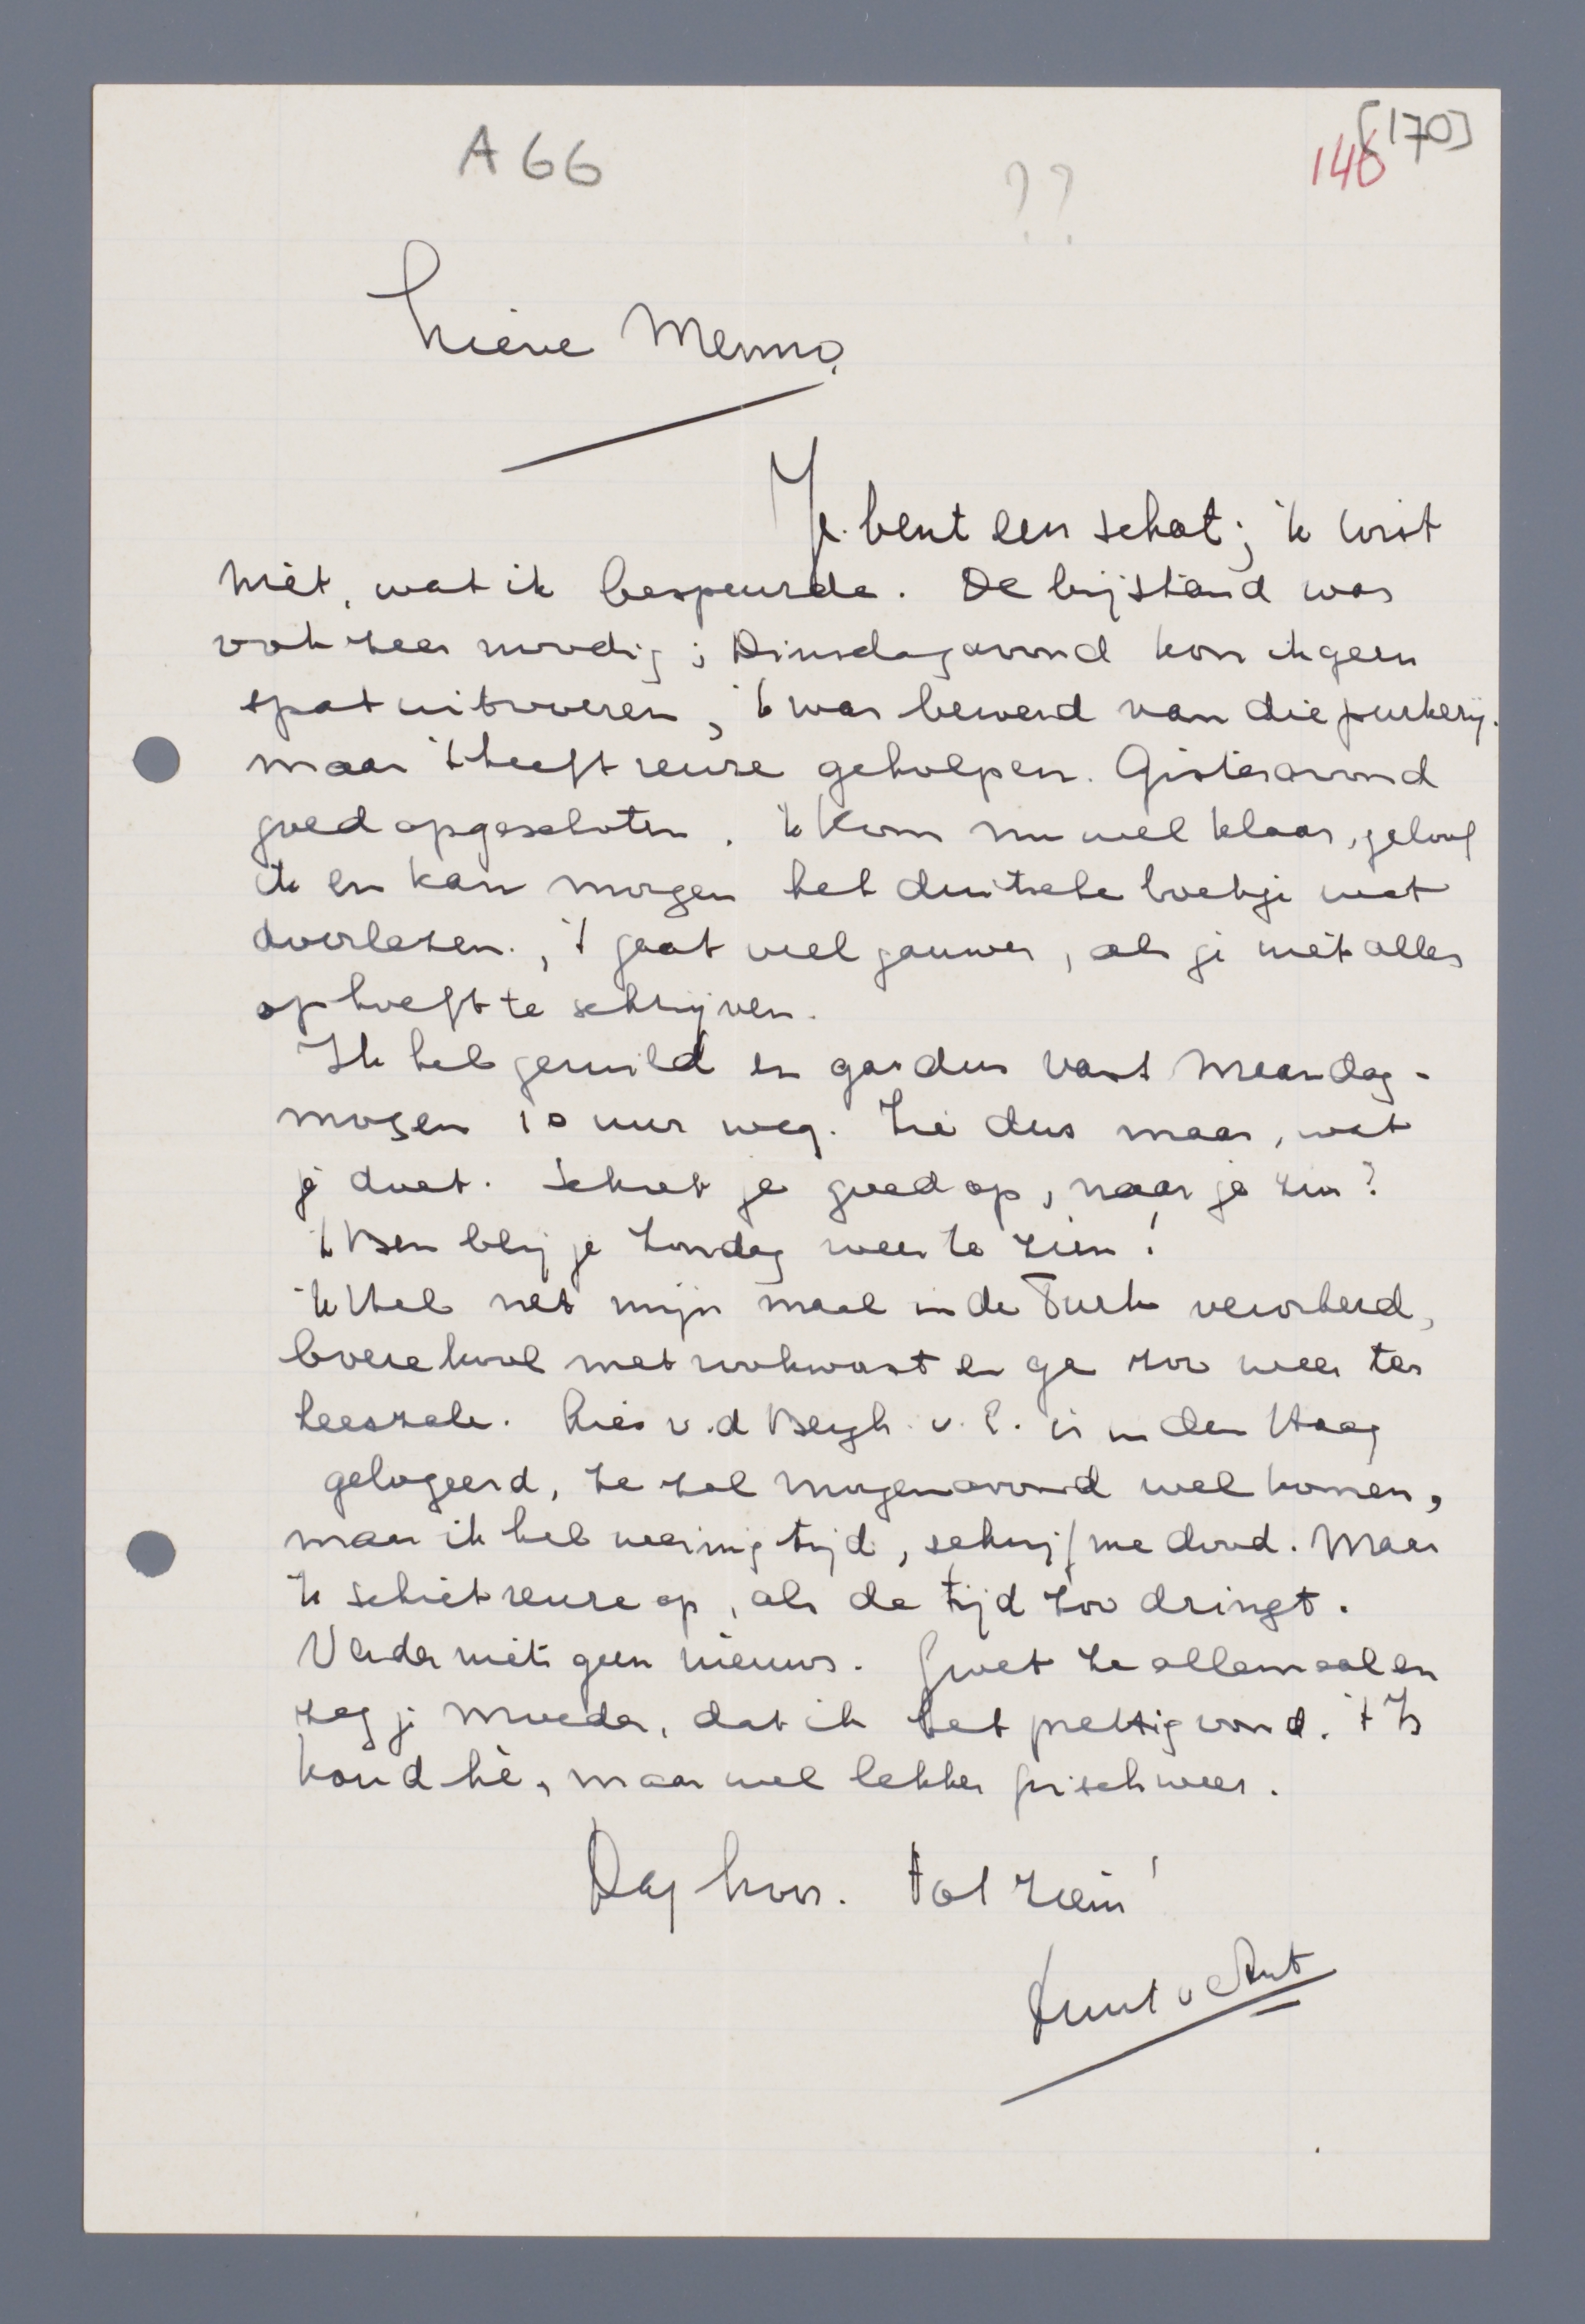 A 66
??
146
[170]
Lieve Menno,
Je bent een schat; 'k wist
niet, wat ik bespeurde. De bijstand was
ook zeer noodig; Dinsdagavond kon ik geen
spat uitvoeren, 'k was bewerd van die
maar 't heeft reuze geholpen. Gisteravond
goed opgeschoten. 'k Kom nu wel klaar, geloof
ik en kan morgen het duitsche boekje wat
doorlezen., 't gaat veel gauwer, als je niet alles
op hoeft te schrijven.
Ik heb geruild en ga dus vast Maandag-
morgen 10 uur weg. Zie dus maar, wat
je doet. Schiet je goed op, naar je zin?
'k Ben blij je Zondag weer te zien!
'k Heb net mijn maal in de Turk verorberd,
boerekool met rookworst en ga zoo weer ter
leeszale. Lies v.d Bergh v. E. is in den Haag
gelogeerd, ze zal morgenavond wel komen,
maar ik heb weinig tijd, schrijf me dood. Maar
'k schiet reuze op, als de tijd zoo dringt.
Verder niets geen nieuws. Groet ze allemaal en
zeg je Moeder, dat ik het prettig vond. 't Is
koud hè, maar wel lekker frisch weer.
Dag hoor. tot ziens!
v Ant